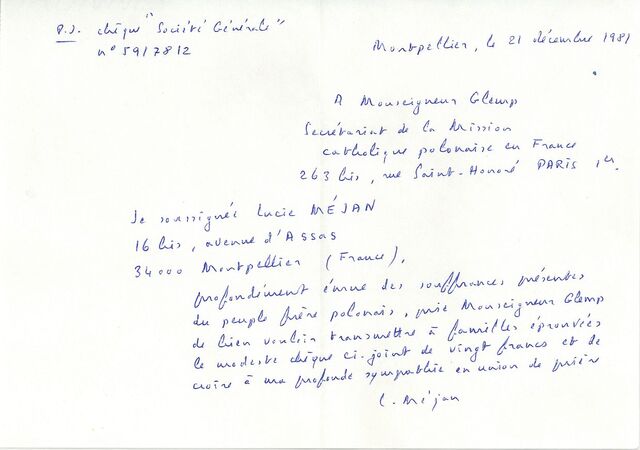 P.J. chèque "Société Générale"
n° 5917812
Montpellier, le 21 décembre 1981
A Monseigneur Glemp
Secrétariat de la Mission
catholique polonaise en France
263 bis, rue Saint-Honoré PARIS 1er.
Je soussignée Lucie MÉJAN
16 bis, avenue d'Assas
34000 Montpellier (France),
profondément émue des souffrances présentes
du peuple frère polonais, prie Monseigneur Glemp
de bien vouloir transmettre à familles éprouvées
le modeste chèque ci-joint de vingt francs et de
croire à ma profonde sympathie en union de prière
L. Méjan